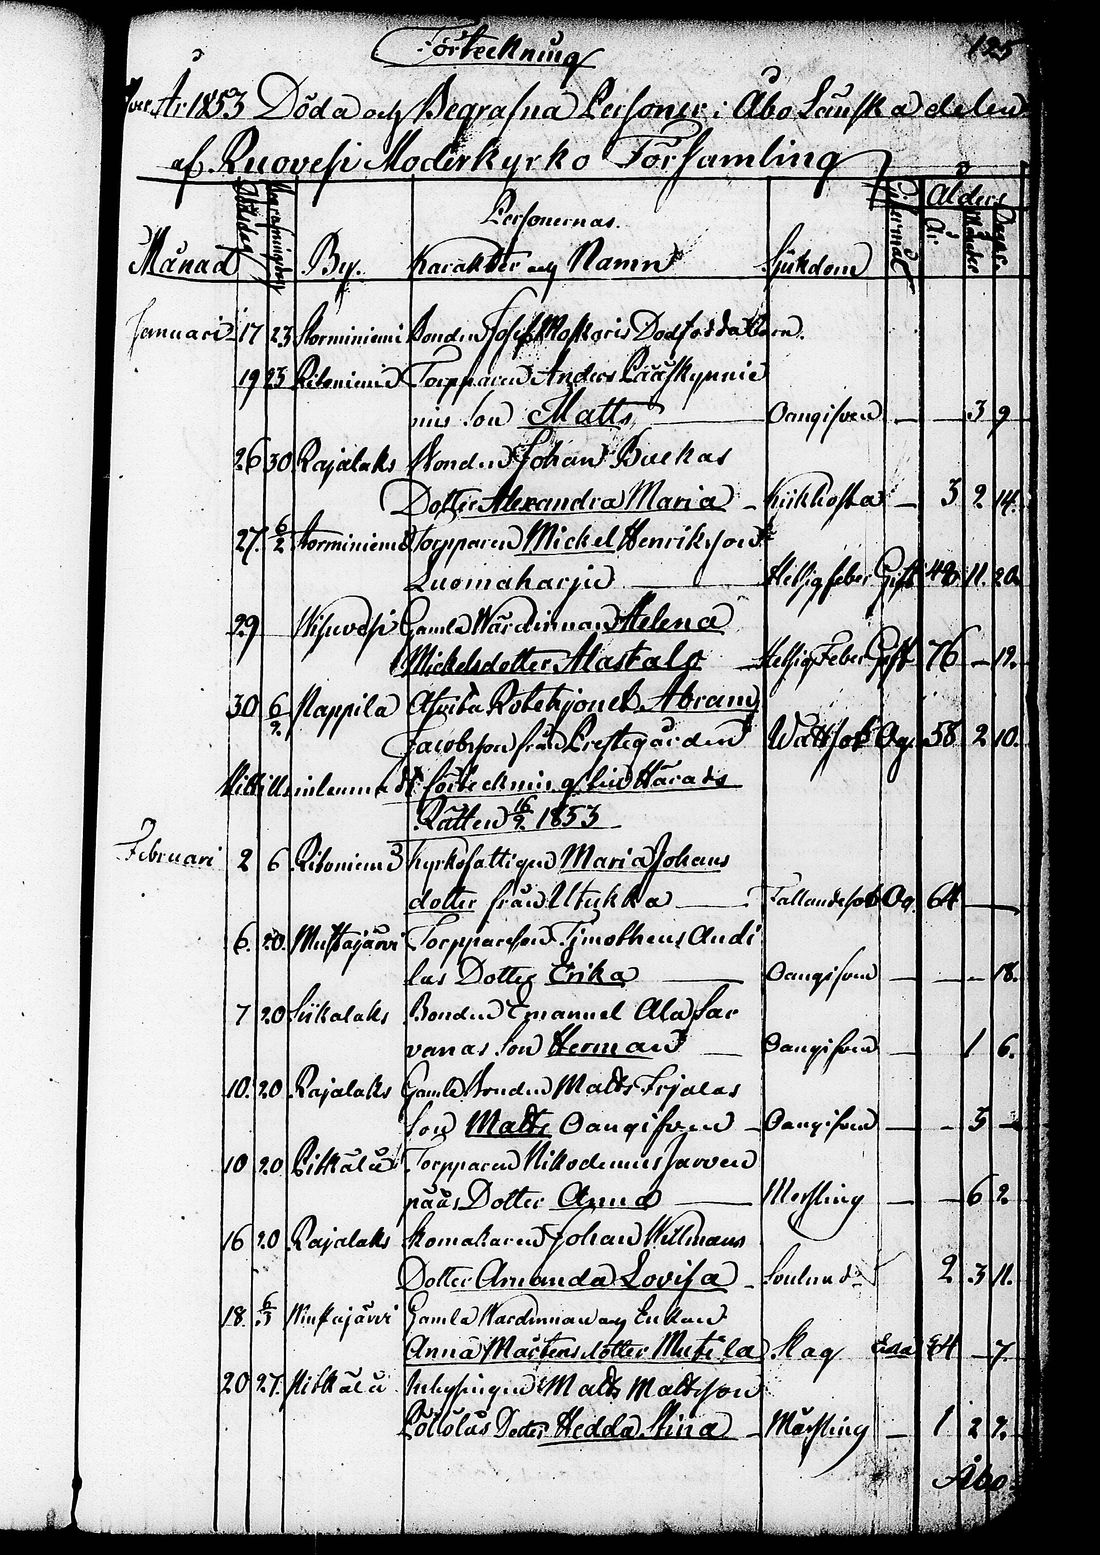 Förteckning
125
över År 1853 Döda och Begrafna Personer i Åbo Länska delen
af Ruovesi Moderkyrko Församling
Månad Dödsdag Begrafningsdag By. Personernas. Karakter och Namn Sjukdom Civilstånd Ålders År Månader Dagar.
Januari 17 23 Storminiemi Bonden Josef Koskaris Dödfödda Barn.
19 23 Ritoniemi Torpparen Anders Pääskynnie
mis Son Matts Oangifven — — 3 9
26 30 Rajalaks Bonden Johan Buckas
Dotter Alexandra Maria Kikhosta — 3 2 14.
27. 6/2 Storminiemi Torpparen Mickel Henriksson
Luomaharju Hetsigfeber Gift 48 11. 20.
29 Wisuvesi Gamla Wärdinnan Helena
Mickelsdotter Alastalo Hetsig Feber Gift 76 — 19.
30 6/2 Kappila Afsitta Rotehjonet Abram
Jacobsson från Prestegården Wattsot Og. 58 2 10.
Häradsrätten 16/2 1853
Februari 2 6 Ritoniemi Kyrkofattigen Maria Johans
dotter från Utukka Fallandesot Og. 64 —
6. 20. Mustajärvi Torpparson Timotheus Andi
las Dotter Erika Oangifven — — — 18.
7 20 Siikalaks Bonden Emanuel Ala Sar
vanas Son Herman Oangifven — 1 6.
10. 20 Rajalaks Gamla Bonden Matts Frjalas
Son Matts Oangifven Oangifven — — 5 —
10 20 Pitkälä Torpparen Nikodemus Jarven
pääs Dotter Anna Messling — — 6 2.
16 20 Rajalaks Skomakaren Johan Willmans
Dotter Amanda Lovisa 2 3 11.
18. 6/3 Mustajärvi Gamla Wärdinnan och Enkan
Anna Mårtensdotter Mutila Slag Enka 84 — 7.
20 27. Pitkälä Inhysingen Matts Mattsson
Pöllöläs Doter Hedda Stina Mässling — 1 2 7.
Åbo